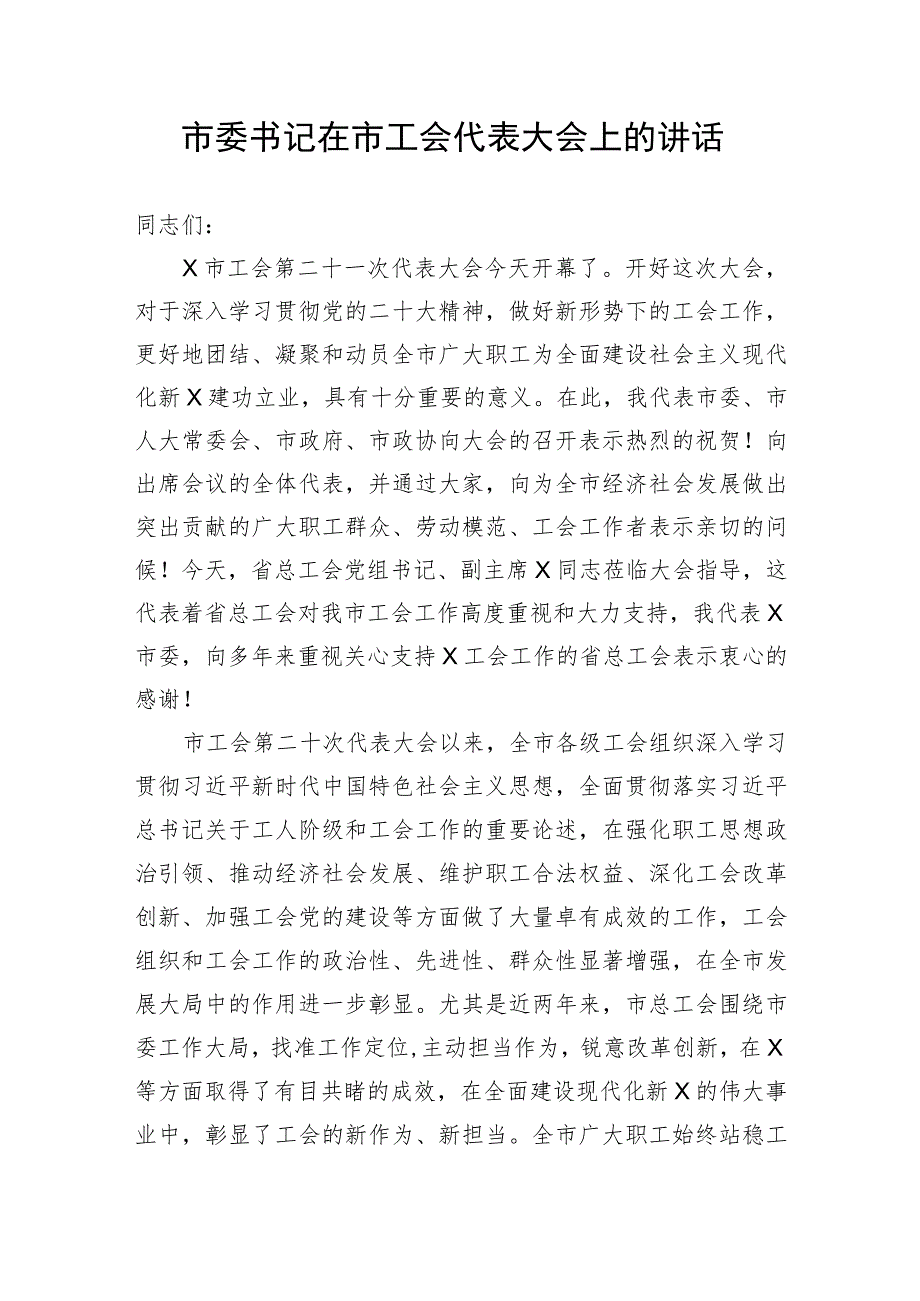 市委书记在市工会代表大会上的讲话
同志们：
X 市工会第二十一次代表大会今天开幕了。开好这次大会，
对于深入学习贯彻党的二十大精神，做好新形势下的工会工作，
更好地团结、凝聚和动员全市广大职工为全面建设社会主义现代
化新 X 建功立业，具有十分重要的意义。在此，我代表市委、市
人大常委会、市政府、市政协向大会的召开表示热烈的祝贺！向
出席会议的全体代表，并通过大家，向为全市经济社会发展做出
突出贡献的广大职工群众、劳动模范、工会工作者表示亲切的问
候！今天，省总工会党组书记、副主席 X 同志莅临大会指导，这
代表着省总工会对我市工会工作高度重视和大力支持，我代表 X
市委，向多年来重视关心支持 X 工会工作的省总工会表示衷心的
感谢！
市工会第二十次代表大会以来，全市各级工会组织深入学习
贯彻习近平新时代中国特色社会主义思想，全面贯彻落实习近平
总书记关于工人阶级和工会工作的重要论述，在强化职工思想政
治引领、推动经济社会发展、维护职工合法权益、深化工会改革
创新、加强工会党的建设等方面做了大量卓有成效的工作，工会
组织和工会工作的政治性、先进性、群众性显著增强，在全市发
展大局中的作用进一步彰显。尤其是近两年来，市总工会围绕市
委工作大局，找准工作定位,主动担当作为，锐意改革创新，在 X
等方面取得了有目共睹的成效，在全面建设现代化新 X 的伟大事
业中，彰显了工会的新作为、新担当。全市广大职工始终站稳工